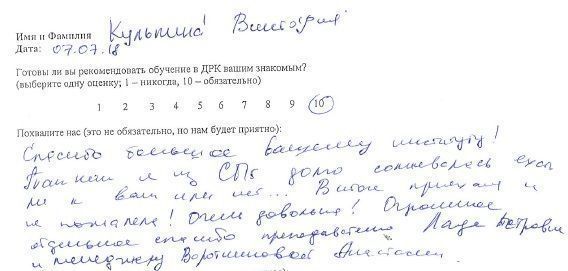 Имя и Фамилия Культина Виктория
Дата: 07.07.18
Готовы ли вы рекомендовать обучение в ДРК вашим знакомым?
(выберите одну оценку; 1 – никогда, 10 – обязательно)
1 2 3 4 5 6 7 8 9 10
Похвалите нас (это не обязательно, но нам будет приятно):
Спасибо большое вашему институту!
и из СПб долго сомневалась ехать
ли к вам или нет... Витоге приехала и
не пожалела! Очень довольна! Огромное
отдельное спасибо преподавателю Ладе Петровне
и менеджеру Воротниковой Анастасии.